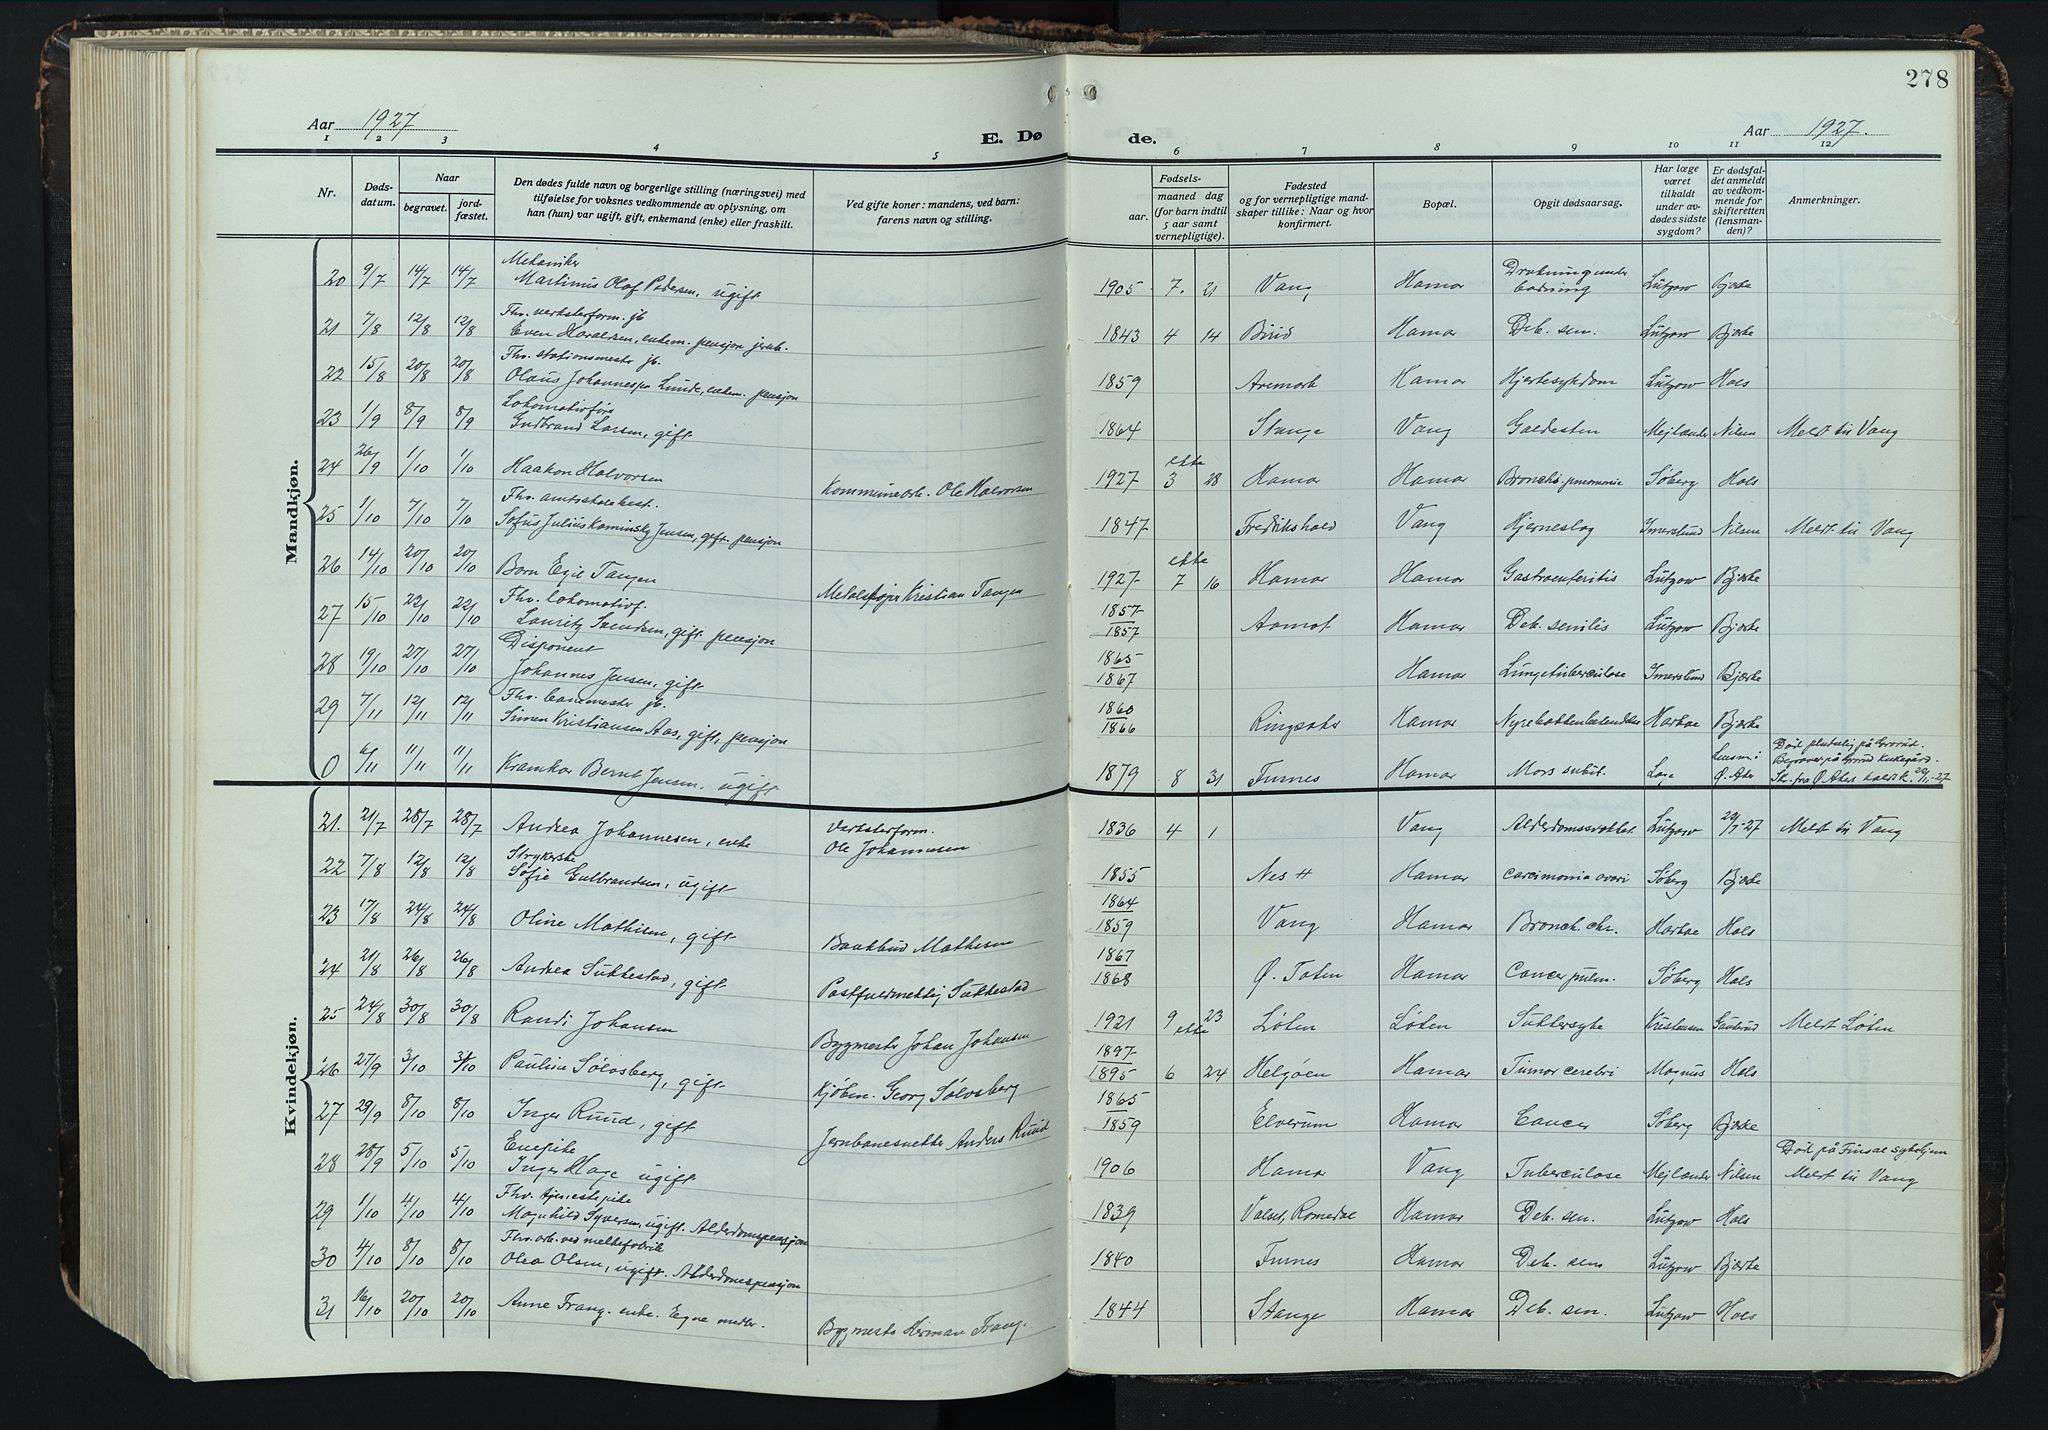 278
Aar 1927
E. Dø de.
Aar 1927.
1 2 3 4 5 6 7 8 9 10 11 12
Nr.
Døds-
datum.
Naar
begravet.
jord-
fæstet.
Den dødes fulde navn og borgerlige stilling (næringsvei) med
tilføielse for voksnes vedkommende av oplysning, om
han (hun) var ugift, gift, enkemand (enke) eller fraskilt.
Ved gifte koner: mandens, ved barn:
farens navn og stilling.
Fødsels-
aar.
maaned dag
(for barn indtil
5 aar samt
vernepligtige).
Fødested
og for vernepligtige mand-
skaper tillike: Naar og hvor
konfirmert.
Bopæl.
Opgit dødsaarsag.
Har læge
været
tilkaldt
under av-
dødes sidste
sygdom?
Er dødsfal-
det anmeldt
av vedkom-
mende for
skifteretten
(lensman-
den)?
Anmerkninger.
Mandkjøn.
Mekaniker
20 9/7 14/7 14/7 Martinus Olaf Pedersen, ugift 1905 7. 21 Vang Hamar Drukning under badning Lützow Bjerke
Fhv. verksterform. jb
21 7/8 12/8 12/8 Even Haraldsen, enkem. pensjon jernb. 1843 4 14 Biri Hamar Deb. sen. Lützow Bjerke
Fhv. stationsmester jb.
22 15/8 20/8 20/8 Olaus Johannessen Lunde, enkem. pensjon 1859 Aremark Hamar Hjertesykdom Lützow Hals
Lokomotivfører
23 1/9 8/9 8/9 Gudbrand Larsen, gift 1864 Stange Vang Galdesten Mejlænder Nilsen Meldt til Vang
24 26/9 1/10 1/10 Haakon Halvorsen Kommunearb. Ole Halvorsen 1927 ekte 3 28 Hamar Hamar Bronchopneumonie Søberg Hals
Fhv. amtsskolebest.
25 1/10 7/10 7/10 Sofus Julius Kaminsky Jensen, gift. pensjon 1847 Fredrikshald Vang Hjerneslag Imerslund Nilsen Meldt til Vang
26 14/10 20/10 20/10 Barn Egil Tangen Kristian Tangen 1927 ekte 7 16 Hamar Hamar Gastroenteritis Lützow Bjerke
Fhv. lokomotivf.
27 15/10 22/10 22/10 Lauritz Svendsen, gift. pensjon 1857 1857 Aamot Hamar Deb. senilis Lützow Bjerke
Disponent
28 19/10 27/10 27/10 Johannes Jensen, gift 1865 1867 Hamar Lungetuberculose Imerslund Bjerke
Fhv. banemester jb.
29 7/11 12/11 12/11 Simen Kristiansen Aas, gift, pensjon 1860 1866 Ringsaker Hamar Nyrebækkenbetændelse Harboe Bjerke
0 6/11 11/11 11/11 Kramkar Bernt Jensen. ugift 1879 8 31 Furnes Hamar Mors subit. Lensm. i Ø. Aker Død pludselig på Grorud. Begravet på Grorud kirkegård. Sk. fra Ø. Aker
Kvindekjøn.
21. 21/7 28/7 28/7 Andrea Johannesen, enke Verksterform. Ole Johannesen 1836 4 1 Vang Alderdomssvakhet Lützow 29/7-27 Meldt til Vang
Strykerske
22 7/8 12/8 12/8 Sofie Gulbrandsen, ugift 1855 Nes H Hamar Carcinomia ovari Søberg Bjerke
23 17/8 24/8 24/8 Oline Mathisen, gift Bankbud Mathesen 1864 1859 Vang Hamar Bronch. chr. Harboe Hals
24 21/8 26/8 26/8 Andrea Sukkestad, gift Postfuldmektig Sukkestad 1867 1868 Ø. Toten Hamar Cancer pulm. Søberg Hals
25 24/8 30/8 30/8 Randi Johansen Bygmester Johan Johansen 1921 9 ekte 23 Løten Løten Sukkersyke Kristensen Gaukrud Meldt Løten
26 27/9 3/10 3/10 Pauline Sølvsberg, gift Kjøbm. Georg Sølvsberg 1897 1895 6 24 Helgøen Hamar Tumor cerebri Magnus Hals
27 29/9 8/10 8/10 Inger Ruud, gift Anders Ruud 1865 1859 Elverum Hamar Cancer Søberg Bjerke
28 28/9 5/10 5/10 Inger Hage ugift 1906 Hamar Vang Tuberculose Mejlænder Nilsen Død på Finsal sykehjem Meldt til Vang
Fhv. tjenestepike
29 1/10 4/10 4/10 Magnhild Syversen, ugift. Alderdomspensjon 1839 Valset, Romedal Hamar Deb. sen. Lützow Hals
Fhv. arb. ved melkefabrik
30 4/10 8/10 8/10 Olea Olsen, ugift. Alderdomspensjon 1840 Furnes Hamar Deb. sen Lützow Bjerke
31 16/10 20/10 20/10 Anne Frang. enke. Egne midler. Bygmester Herman Frang. 1844 Stange Hamar Deb. sen. Lützow Hals